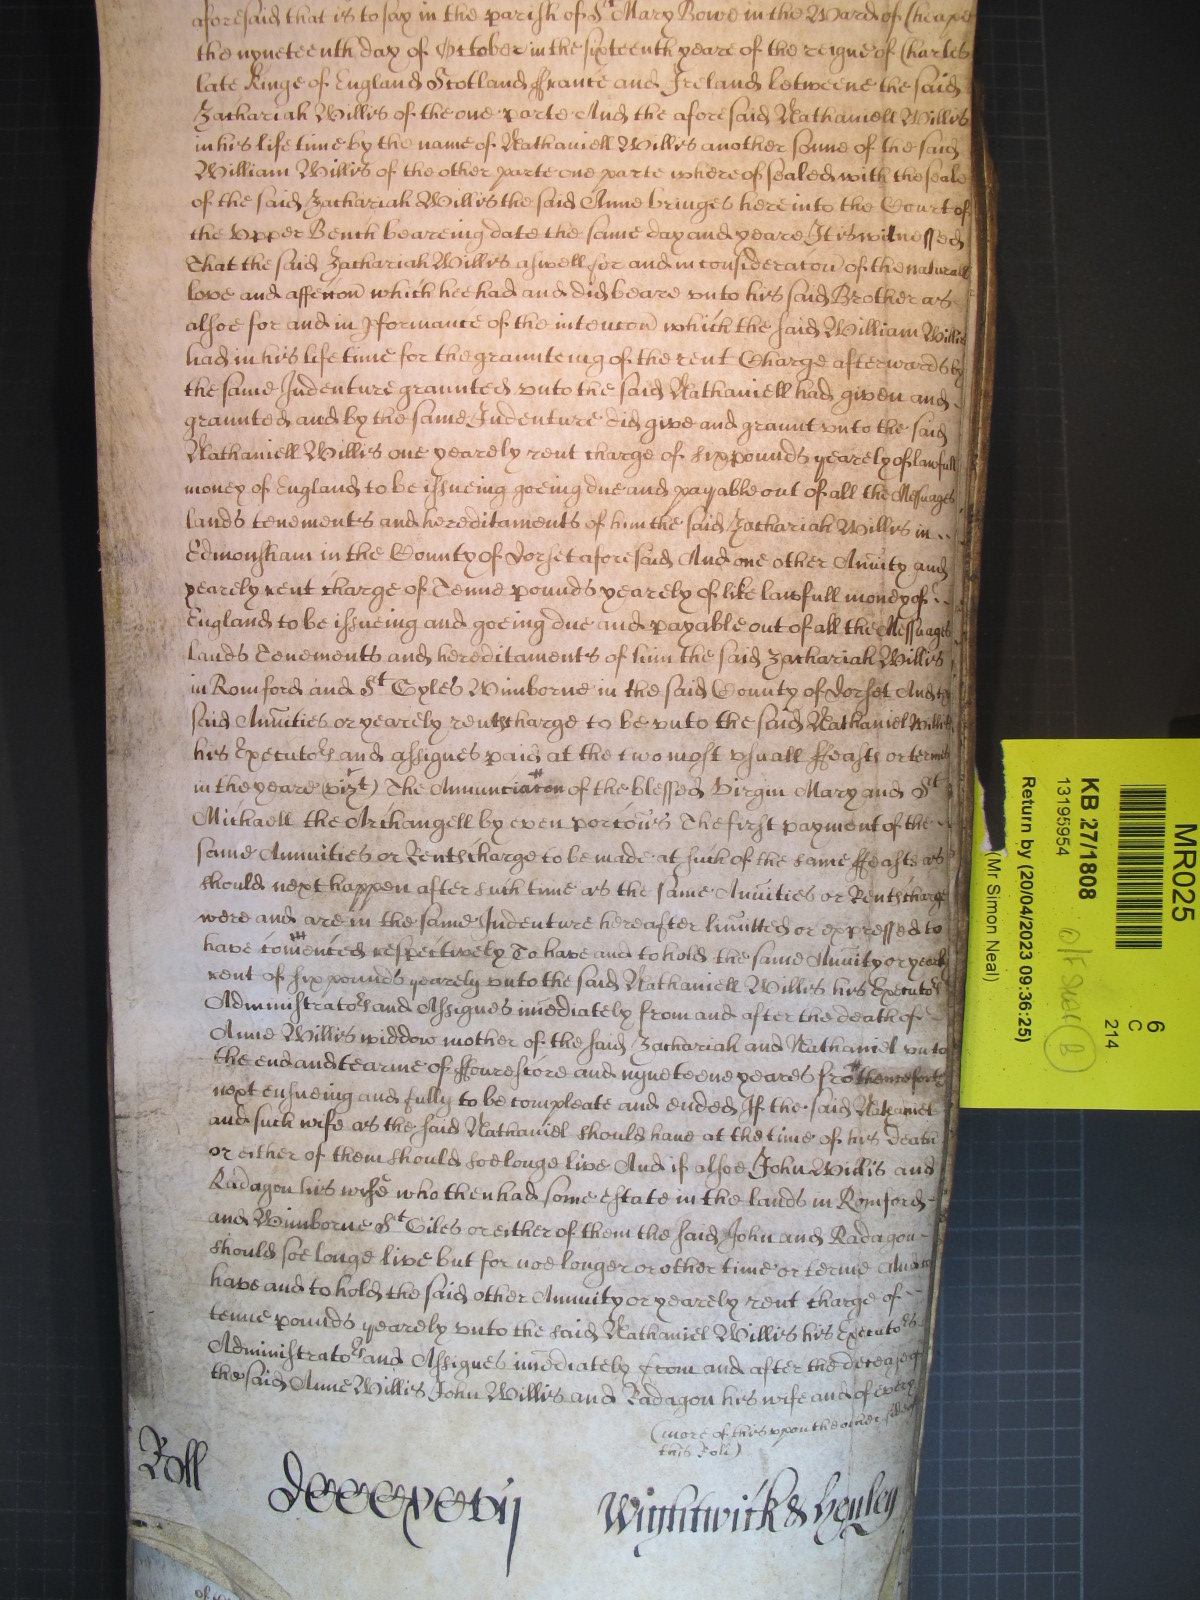 aforesaid that is to say in the parish of St Mary Bowe in the Ward of Cheape
the nyneteenth day of October in the sixteenth yeare of the reigne of Charles
late Kinge of England Scotland ffrance and Ireland betweene the said
Zachariah Willis of the one parte And the aforesaid Nathaniell Willis
in his life time by the name of Nathaniell Willis another sonne of the said
William Willis of the other parte one parte whereof sealed with the seale
of the said Zachariah Willis the said Anne bringes here into the Court of
the Vpper Bench beareing date the same day and yeare It is witnessed
That the said Zachariah Willis aswell for and in consideracon of the naturall
love and affeccon which hee had and did beare vnto his said Brother as
alsoe for and in pformance of the intencon which the said William Willis
had in his life time for the graunteing of the rent Charge afterwards by
the same Indenture graunted vnto the said Nathaniell had given and
graunted and by the same Indenture did give and graunt vnto the said
Nathaniell Willis one yearely rent charge of six pounds yearely of lawfull
money of England to be issueing goeing due and payable out of all the Messuages
lands tenements and hereditaments of him the said Zachariah Willis in
Edmonsham in the County of Dorset aforesaid And one other Anuity and
yearely rent charge of Tenne pounds yearely of like lawfull money of
England to be issueing and goeing due and payable out of all the Messuages
lands Tenements and hereditaments of him the said Zachariah Willis
in Romford and St Gyles Wimborne in the said County of Dorset And the
said Anuities or yearely rentscharge to be vnto the said Nathaniel Willis
his Executors and assignes paid at the two most vsuall ffeasts or termes
in the yeare (vizt) The Annunciacon of the blessed Virgin Mary and St
Michaell the Archangell by even porcons The first payment of the
same Annuities or Rentscharge to be made at such of the same ffeasts as
should next happen after such time as the same Anuities or Rentscharge
were and are in the same Indenture hereafter limitted or expressed to
have comenced respectively To have and to hold the same Anuity or yearely
rent of six pounds yearely vnto the said Nathaniell Willis his Executors
Administrators and Assignes imediately from and after the death of
Anne Willis widdow mother of the said Zachariah and Nathaniel vnto
the end and tearme of ffourescore and nyneteene yeares fro thenceforth
next ensueing and fully to be compleate and ended If the said Nathaniel
and such wife as the said Nathaniel should have at the time of his death
or either of them should soe longe live And if alsoe John Willis and
Radagon his wife who then had some estate in the lands in Romford
and Wimborne St Giles or either of them the said John and Radagon
should soe longe live but for noe longer or other time or terme And to
have and to hold the said other Annuity or yearely rent charge of
tenne pounds yearely vnto the said Nathaniel Willis his Executors
Administrators and Assignes imediately from and after the decease of
the said Anne Willis John Willis and Radagon his wife and of every
(more of this vpon the other side of
this Roll)
Roll
Wightwick & Henley
MR025
6
C
214
KB 27/1808
13195954
Return by (20/04/2023 09:36:25)
(Mr Simon Neal)